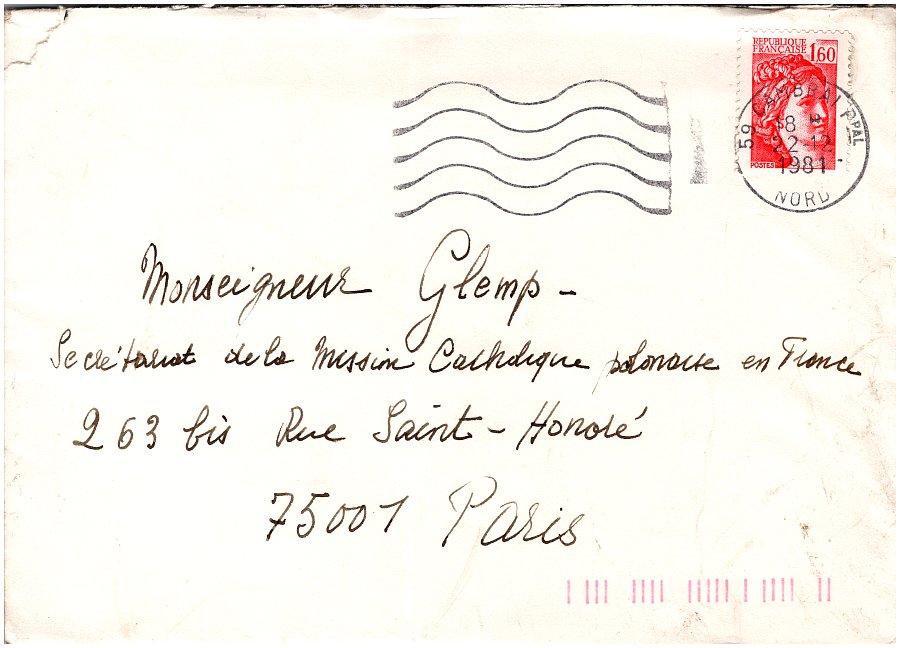 REPUBLIQUE
FRANÇAISE 1,60
POSTES
59 CAMBRAI PPAL
18 H
22-12
1981
NORD
Monseigneur Glemp -
Secrétariat de la Mission Catholique polonaise en France
263 bis Rue Saint-Honoré
75001 Paris